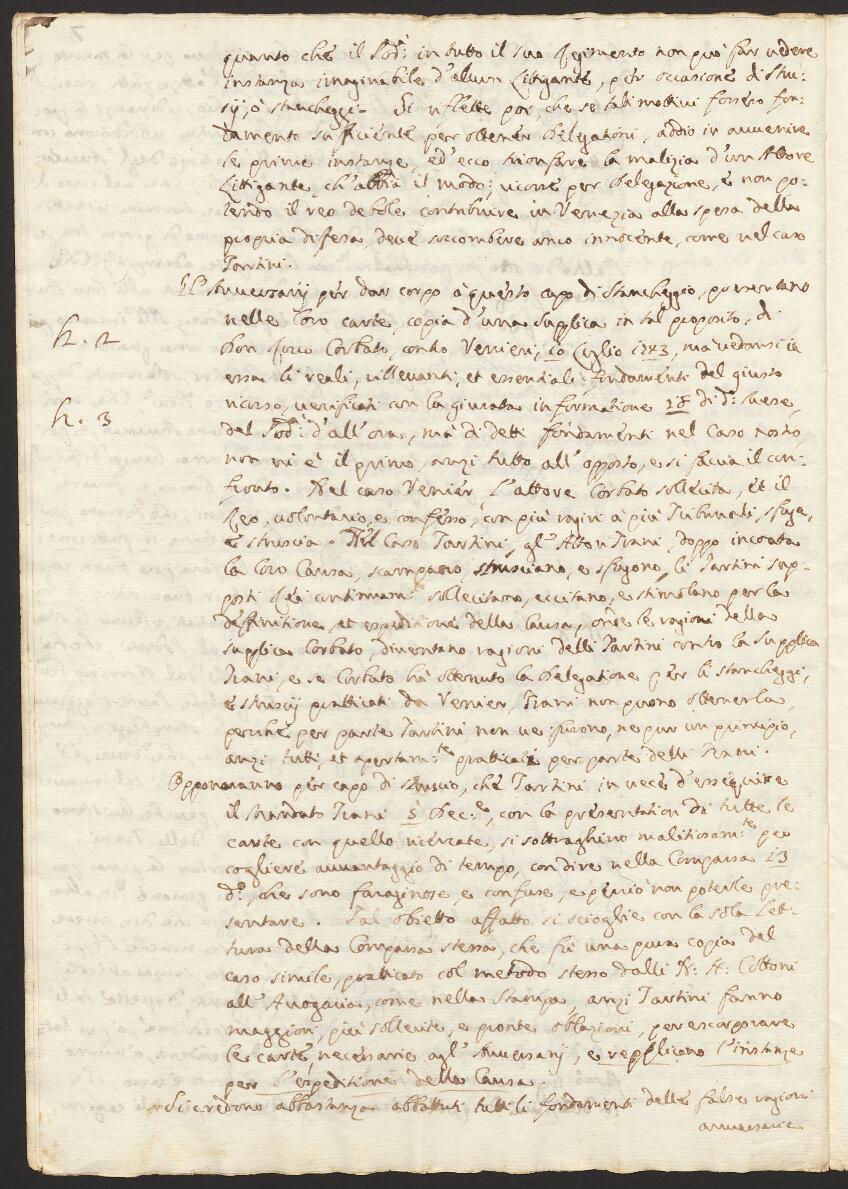 quanto che il Pod:à in tutto il suo Regimento non può far vedere
instanza imaginabile d'alcun Litigante, per occasione di stru-
sij, ò stancheggi. Si riflette poi, che se tali mottivi fossero fon-
damento sufficiente per ottener delegationi, addio in avvenire
le prime instanze, ed ecco trionfare la malizia d'un Attore
Littigante, ch'abbia il modo; ricorre per delegazione, e non po-
tendo il reo debole contribuire in Venezia alla spesa della
propria difesa, deve soccombere anco innocente, come nel caso
Tartini.
Gl'Avversarij per dar corpo à questo capo di stancheggio, presentano
nelle loro carte, copia d'una supplica in tal proposito, di
N. 2
Don Corbato, contro Verrier, 10 Luglio 1743, mà vedansi in
essa li reali, rillevanti, et essentiali fondamenti del giusto
N. 3
ricorso, verificati con la giurata informatione 18 di d:o Mese,
del Pod:à d'all'ora, mà di detti fondamenti nel caso nostro
non vi è il primo, anzi tutto all'opposto, e si faccia il con-
fronto. Nel caso Verrier l'attore Corbato sollecita, et il
Reo, volontario, e confesso, con più raggiri à più Tribunali, sfugge,
e struscia. Nel Caso Tartini, gl'Attori Trani, doppo incoata
la loro Causa, scampano, strusciano, e sfugono, li Tartini sup-
posti Rei continuam:te sollecitano, eccitano, e stimolano per la
diffinitione, et espeditione della Causa, onde le ragioni della
supplica Corbato, diventano ragioni delli Tartini contro la supplica
Trani, e se Corbato hà ottenuto la delegatione per li stancheggi,
e strusij pratticati da Verrier, Trani non puono ottenerla,
perche per parte Tartini non ve furono, ne pur un principio,
anzi tutti, et apertam:te pratticati per parte delli Trani.
Opponeranno per capo di struscio, che Tartini in vece d'essequire
il Mandato Trani 5 Dec:e, con la presentation di tutte le
carte con quello ricercate, si sottraghino malitiosam:te per
cogliere avvantaggio di tempo, con dire nella Comparsa 13
d:o, che sono faraginose, e confuse, e perciò non poterle pre-
sentare. Tal obietto affatto si scioglie con la sola let-
tura della Comparsa stessa, che fù una pura copia del
caso simile, pratticato col metodo stesso dalli N: H: Cottoni
all'Avogaria, come nella stampa, anzi Tartini fanno
maggiori, più sollecite, e pronte oblazioni, per escorporare
le carte necessarie agl'Avversarij, e repplicano l'instanze
per l'espeditione della Causa.
Si credono abbastanza abbattuti tutti li fondamenti delle false ragioni
avversarie